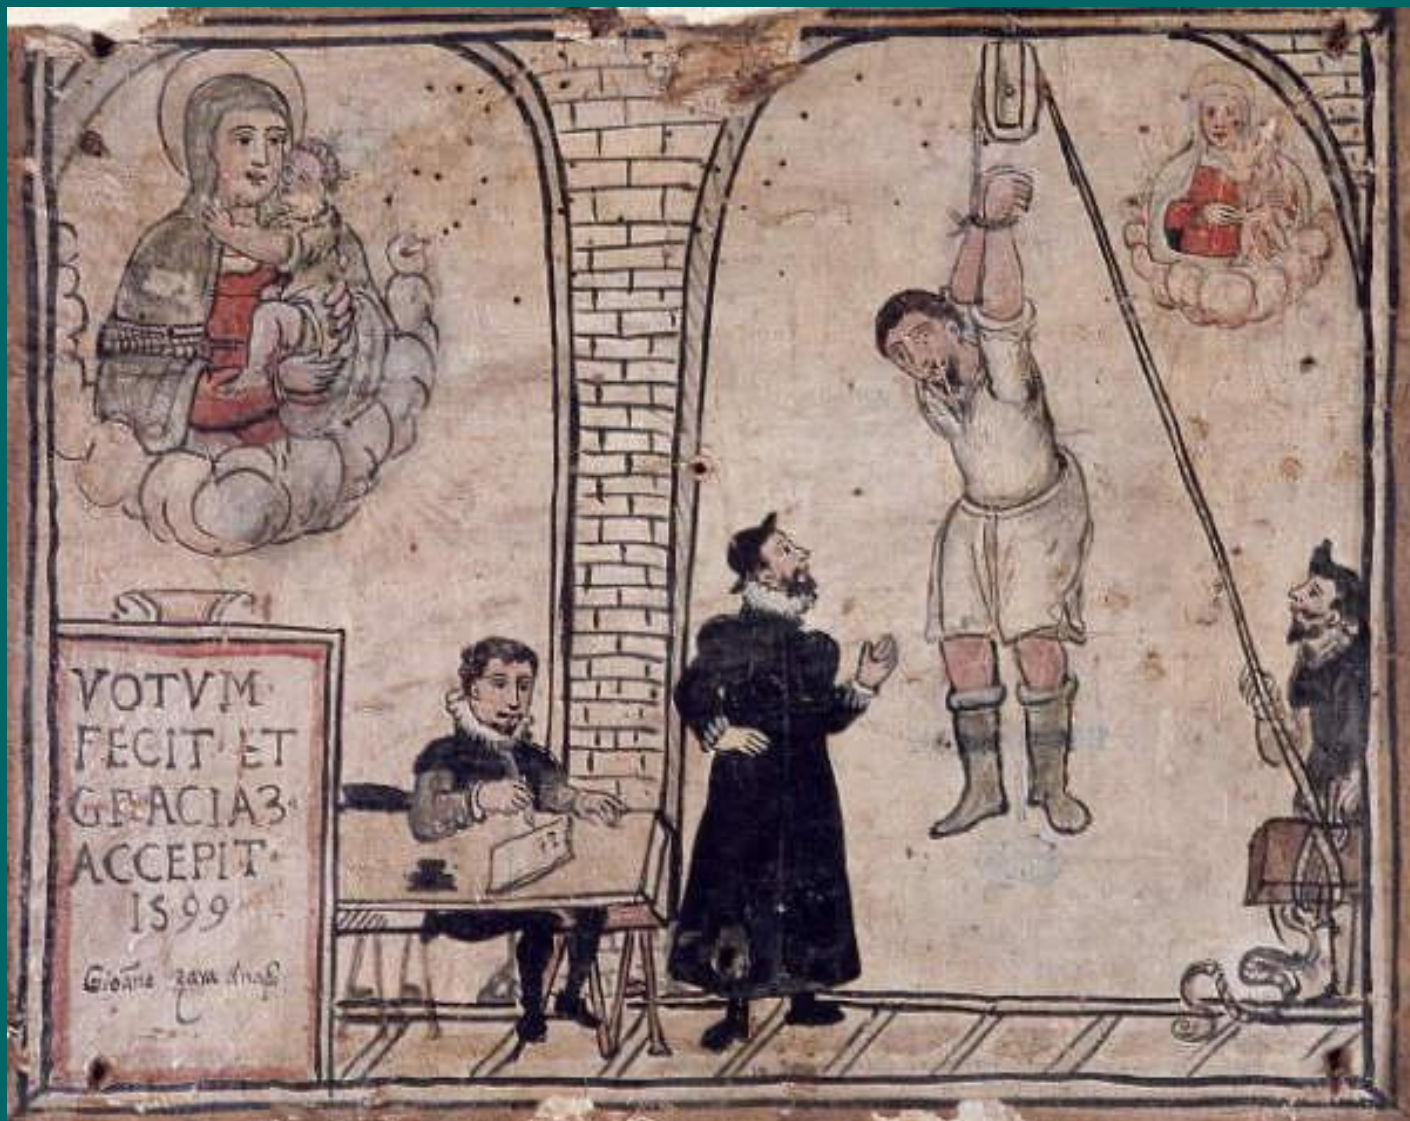 VOTVM
FECIT ET
GRACIA3
ACCEPIT
1599
Gioāne